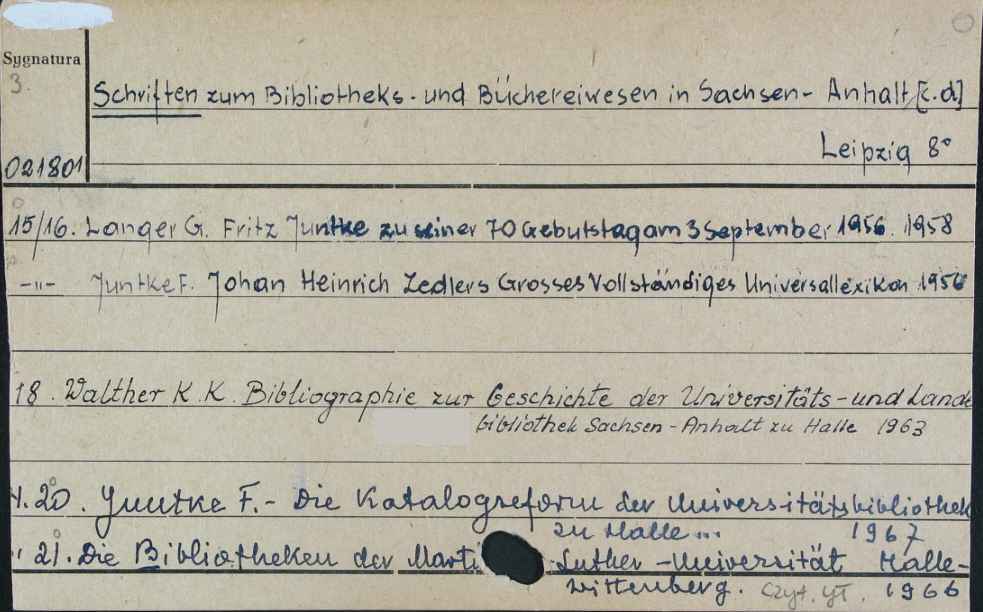 Sygnatura
3.
Schriften zum Bibliotheks- und Büchereiwesen in Sachsen- Anhalt [c.d]
Leipzig 8°
021801
15/16. Langer G. Fritz Juntke zu seiner 70 Gebutstag am 3 September 1956. 1958
-"- Juntke F. Johan Heinrich Zedlers Grosses Vollständiges Universallexikon 1956
18. Walther K. K. Bibliographie zur Geschichte der Universitäts- und Lande
bibliothek Sachsen - Anhalt zu Halle 1963
20. Juntke F. - Die Katalogreform der Universitätsbibliothek
zu Halle ... 1967
" 21. Die Bibliotheken der Marti Luther - Universität Halle-
Wittenberg. Czyt. yT. 1966